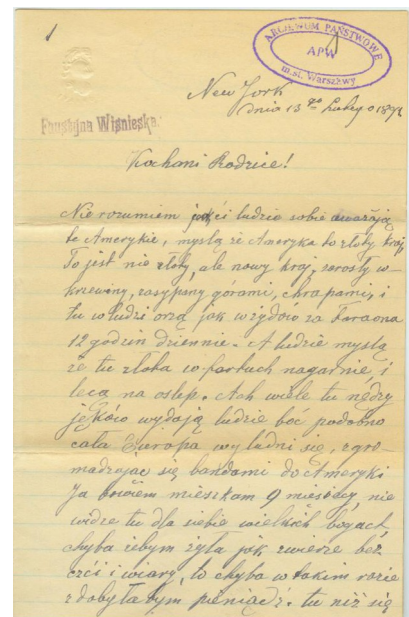 1
ARCHIWUM PAŃSTWOWE
APW
m.st. Warszawy
New York
dnia 13go Lutego
Faustyna Wiśnieska
Kochani Rodzice!
Nie rozumiem ludzie sobie uważają
te Amerykie, myslą że Ameryka to złoty kraj
To jest nie złoty, ale nowy kraj, zarosły w
krzewiny, zasypany górami, chrapami, i
tu ludzi orzą jak w żydów za Faraona
12 godzin dziennie. A ludzie myslą
że tu złota w fartuch nagarnie i
lecą na oslep. Ach wiele tu nędzy
jęków wydają ludzie boć podobno
cała Europa wyludni się, zgro
madzając się bandami do Ameryki
Ja bowiem mieszkam 9 miesięcy, nie
widze tu dla siebie wielkich bogact,
chyba żebym żyła jak zwierze bez
czci i wiary, to chyba w takim razie
zdobyłabym pieniądz. tu niż się